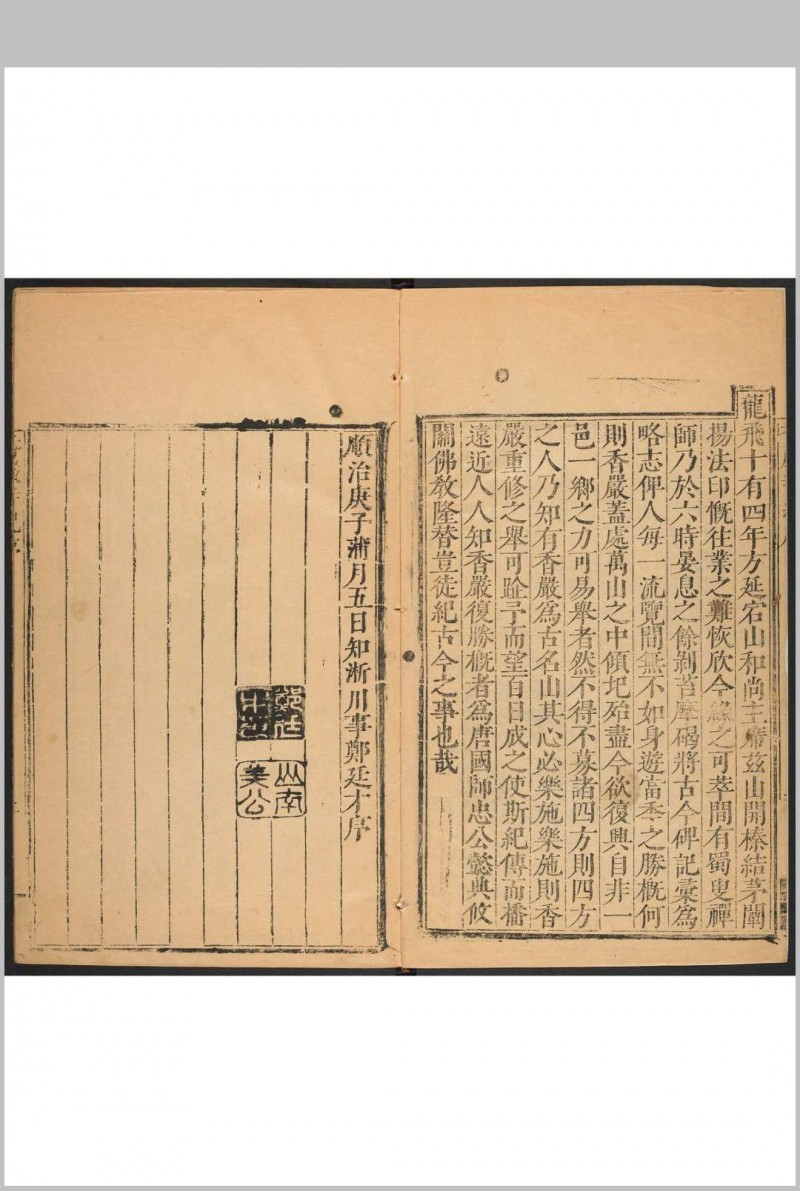 龍飛十有四年方延宕山和尚主席茲山開榛結茅闡
揚法印慨往業之難恢欣今緣之可萃間有蜀叟禪
師乃於六時晏息之餘剃苔摩碣將古今碑記彙為
略志俾人每一流覽間無不如身遊當季之勝概何
則香嚴蓋處萬山之中傾圯殆盡今欲復興自非一
邑一鄉之力可易舉者然不得不募諸四方則四方
之人乃知有香嚴為古名山其心必樂施樂施則香
嚴重修之舉可跂予而望百日成之使斯紀傳而播
遠近人人知香嚴復勝概者為唐國師忠公懿典攸
關佛教隆替豈徒紀古今之事也哉
順治庚子蒲月五日知淅川事鄭廷才序
山南
美公